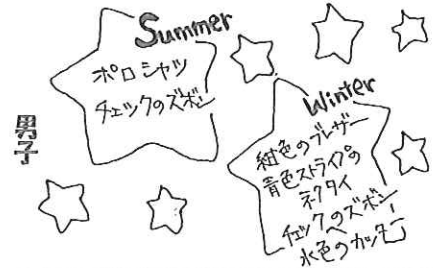 Summer
ポロシャツ
チェックのズボン
男子
Winter
紺色のブレザー
青色ストライプの
ネクタイ
チェックのズボン
水色のカッター